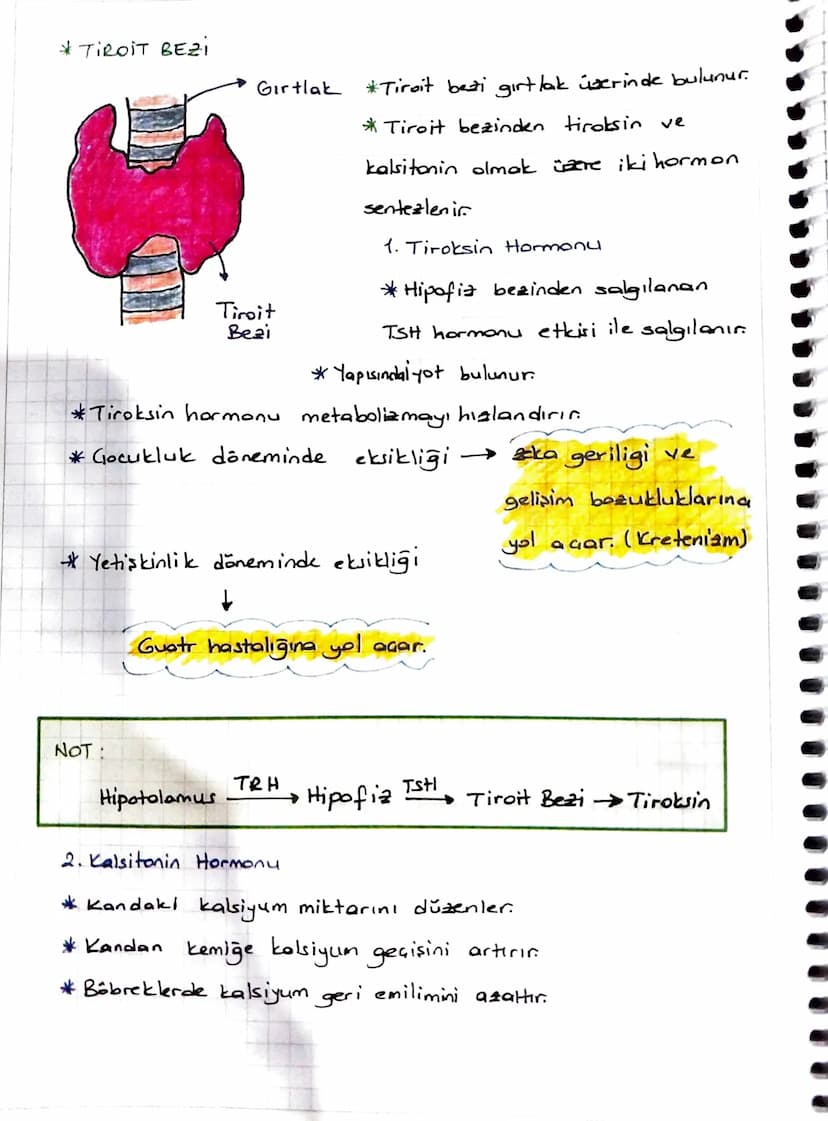 * TİROİT BEZİ
Gırtlak
* Tiroit bezi gırtlak üzerinde bulunur.
* Tiroit bezinden tiroksin ve
kalsitonin olmak üzere iki hormon
sentezlenir.
1. Tiroksin Hormonu
* Hipofiz bezinden salgılanan
TSH hormonu etkisi ile salgılanır.
Tiroit
Bezi
* Yapısında iyot bulunur.
* Tiroksin hormonu metabolizmayı hızlandırır.
* Çocukluk döneminde eksikliği → zeka geriliği ve
gelişim bozukluklarına
yol açar. (Kretenizm)
* Yetişkinlik döneminde eksikliği
↓
Guatr hastalığına yol açar.
NOT :
Hipotolamus TRH → Hipofiz TSH → Tiroit Bezi → Tiroksin
2. Kalsitonin Hormonu
* Kandaki kalsiyum miktarını düzenler.
* Kandan kemiğe kalsiyum geçişini artırır.
* Böbreklerde kalsiyum geri emilimini azaltır.